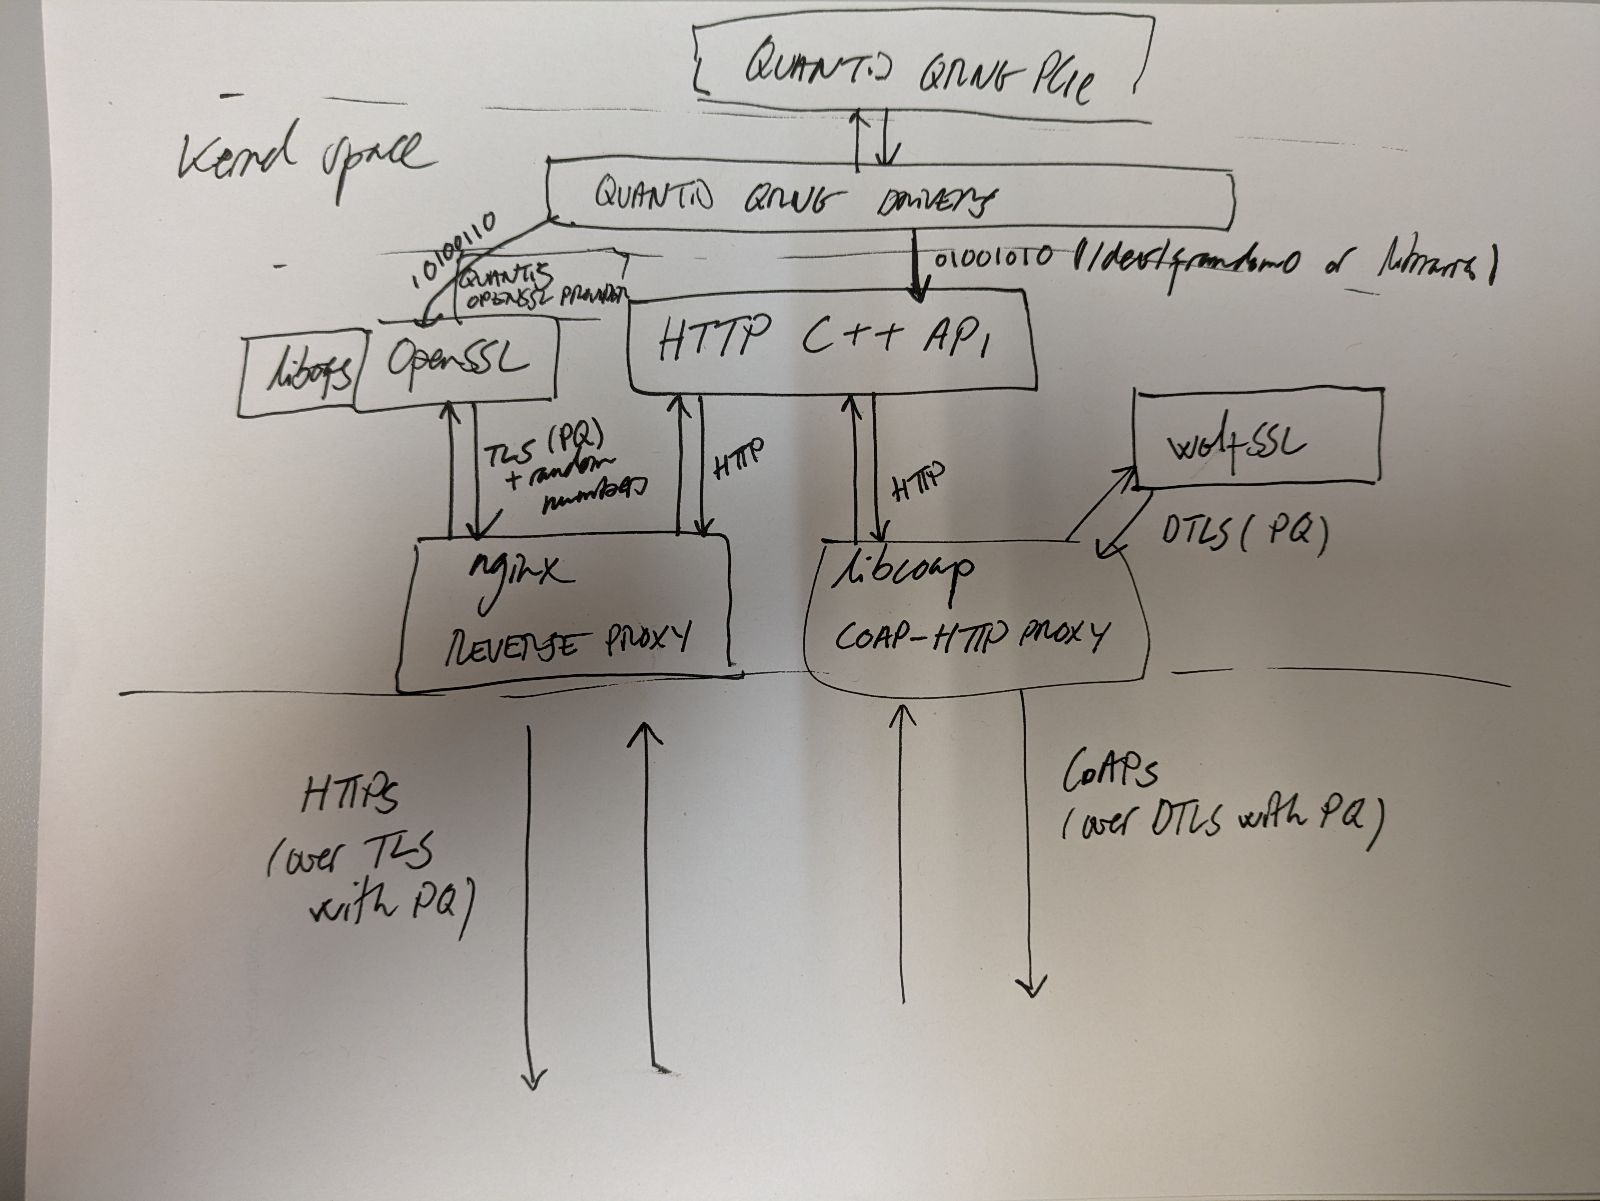 QUANTIS QRNG PCIe
Kernel space
QUANTIS QRNG DRIVERS
10100110
01001010 (/dev/qrandom0 or libraries)
QUANTIS
OPENSSL PROVIDER
liboqs
OpenSSL
HTTP C++ API
wolfSSL
TLS (PQ)
+ random
numbers
HTTP
HTTP
DTLS (PQ)
nginx
REVERSE PROXY
libcoap
COAP-HTTP PROXY
HTTPS
(over TLS
with PQ)
CoAPs
(over DTLS with PQ)